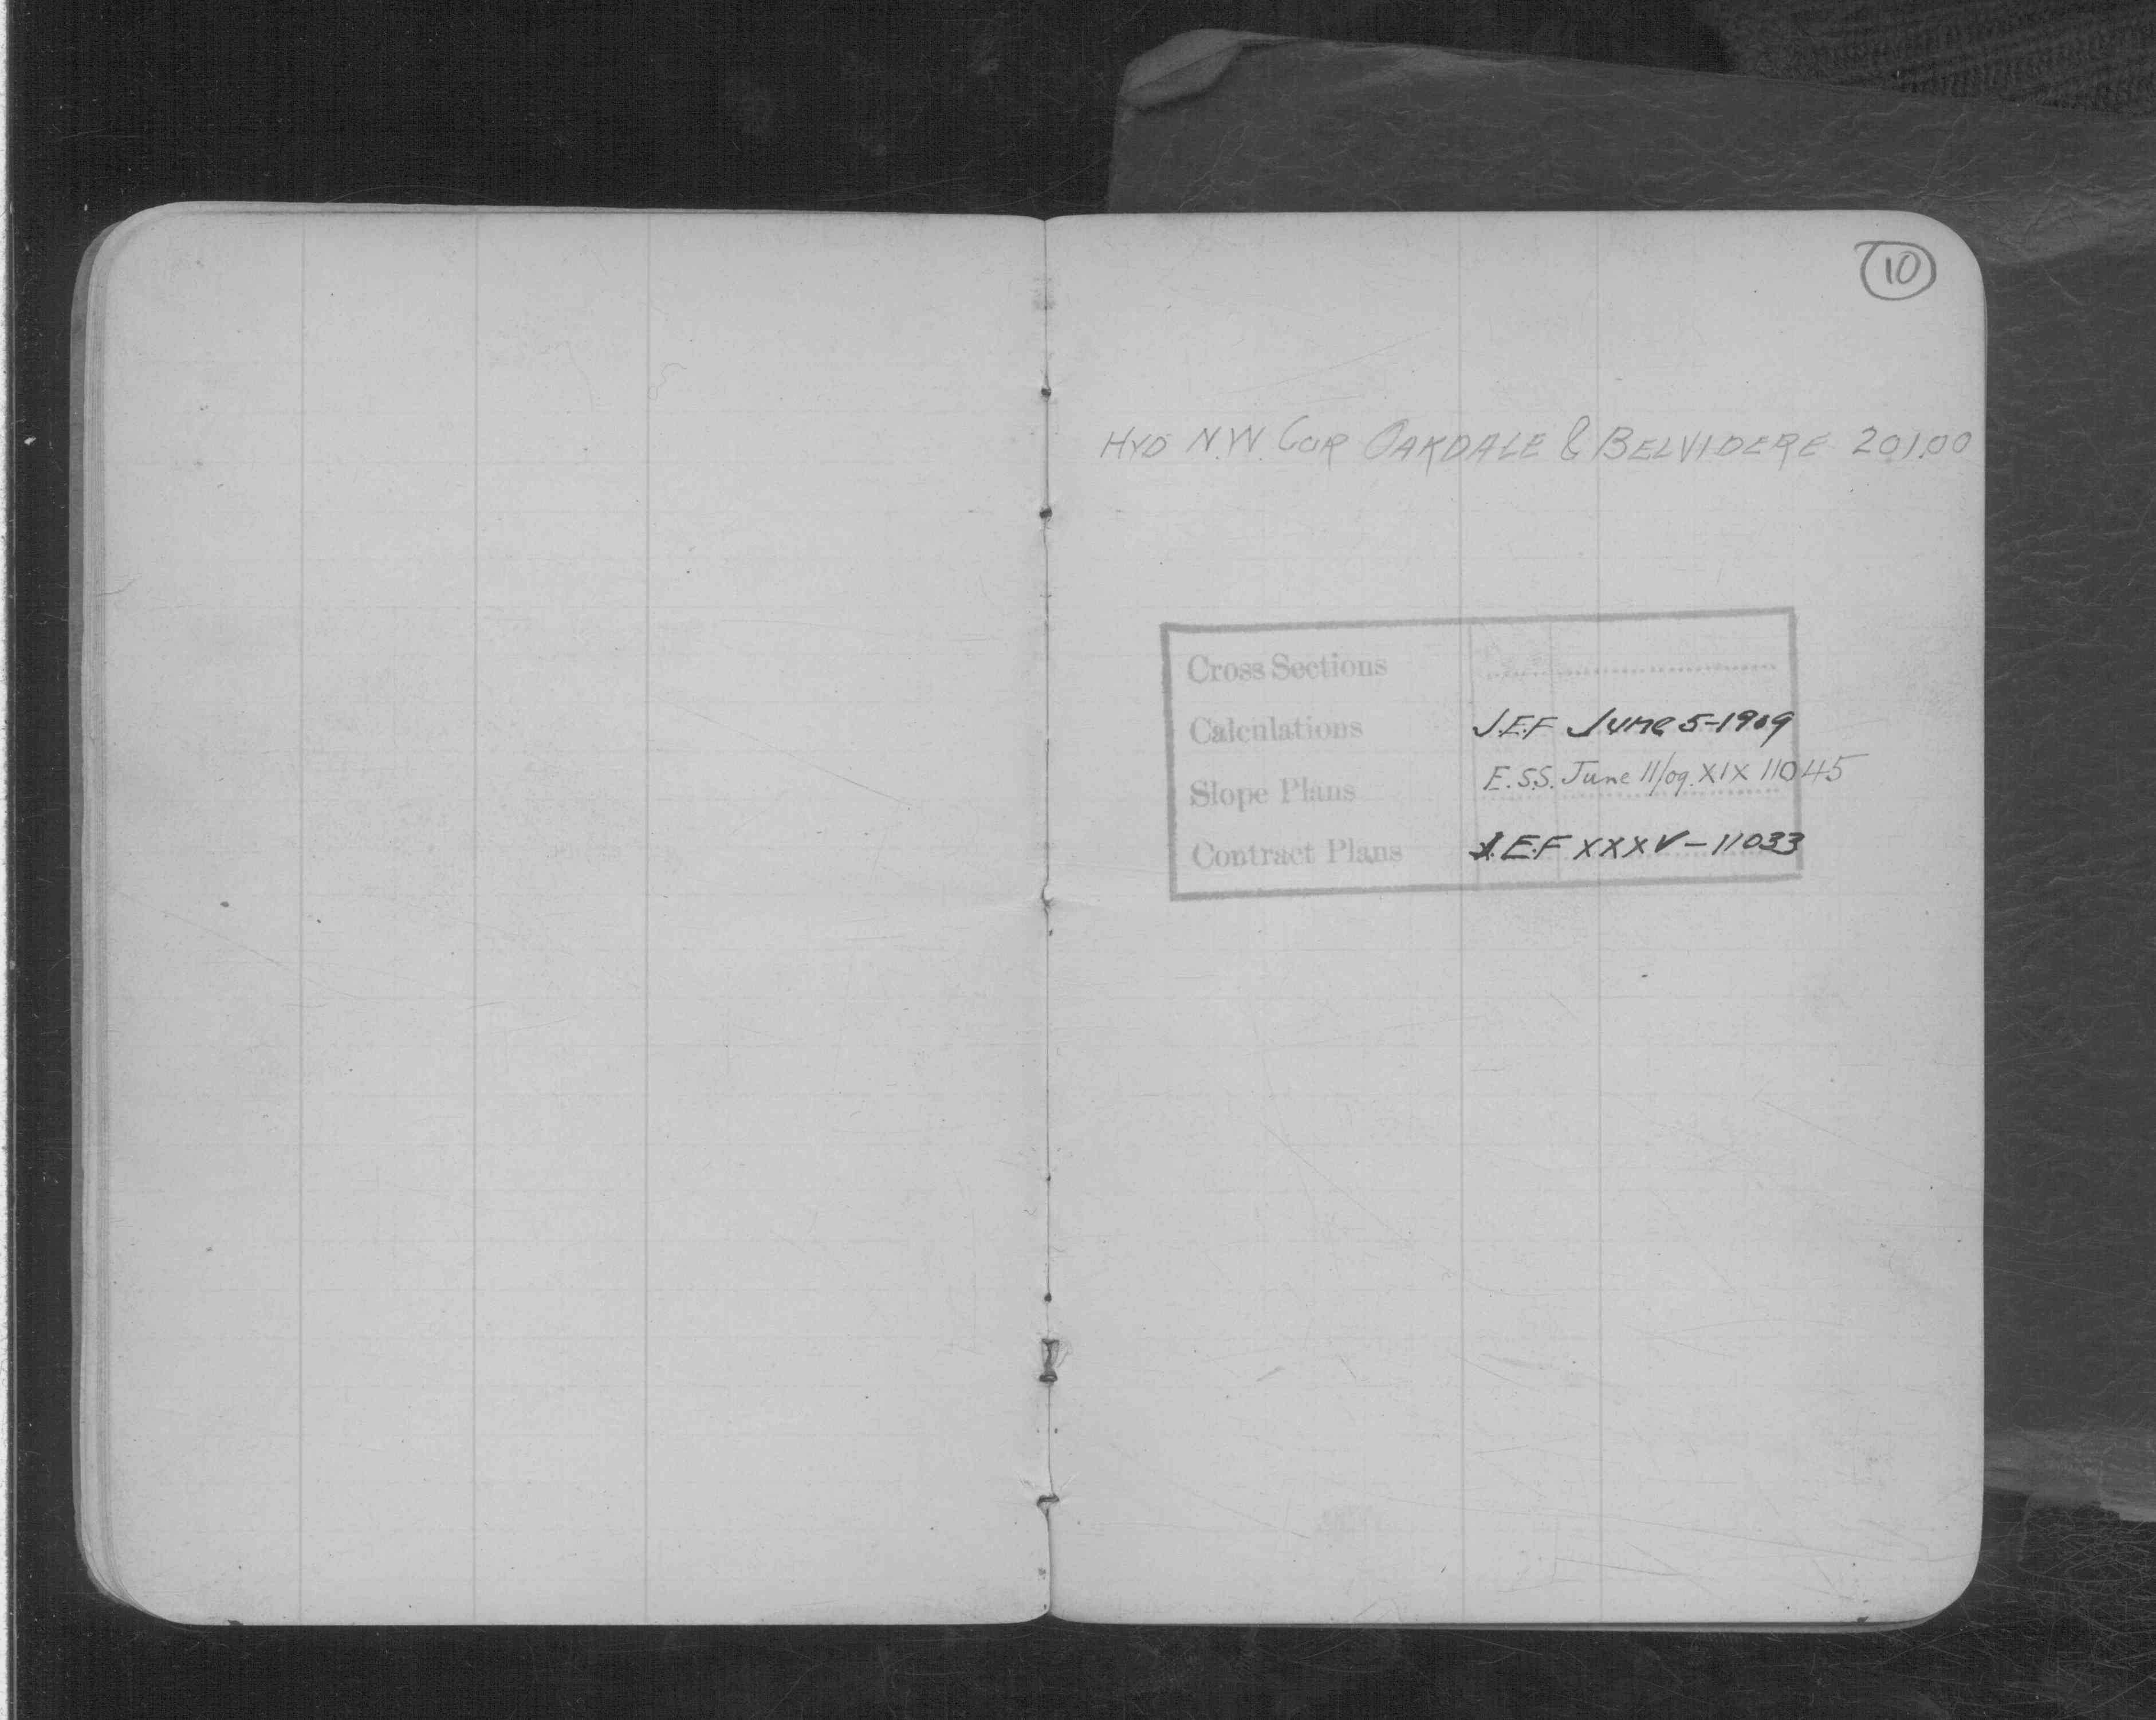 10
HYD N.W. COR OAKDALE & BELVIDERE 201.00
Cross Sections
Calculations J.E.F June 5-1909
Slope Plans E.S.S. June 11/09. XIX 11045
Contract Plans J.E.F XXXV-11033